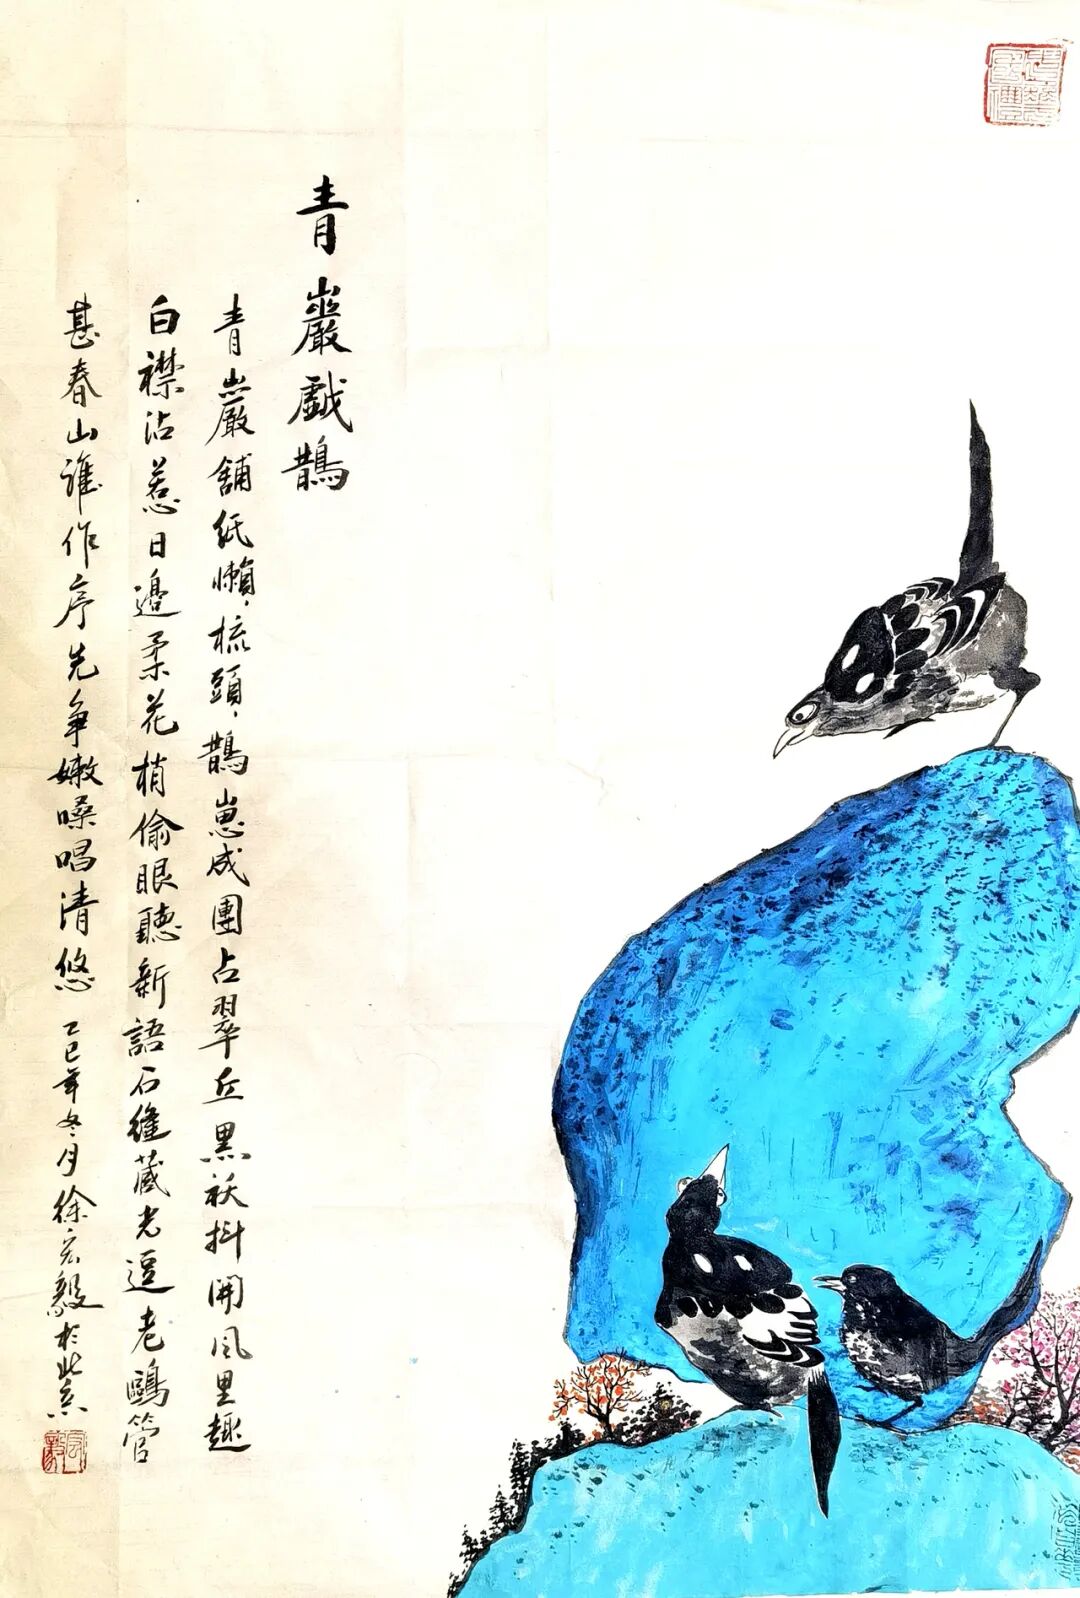 青巖戲鵲
青巖鋪紙懶梳頭，鵲崽成團占翠丘黑袄抖開风里趣
白襟沾惹日邊柔花梢偷眼聽新語石縫藏光逗老鷗管
甚春山誰作序先争嫩嗓唱清悠 乙巳年冬月徐宏毅於北京